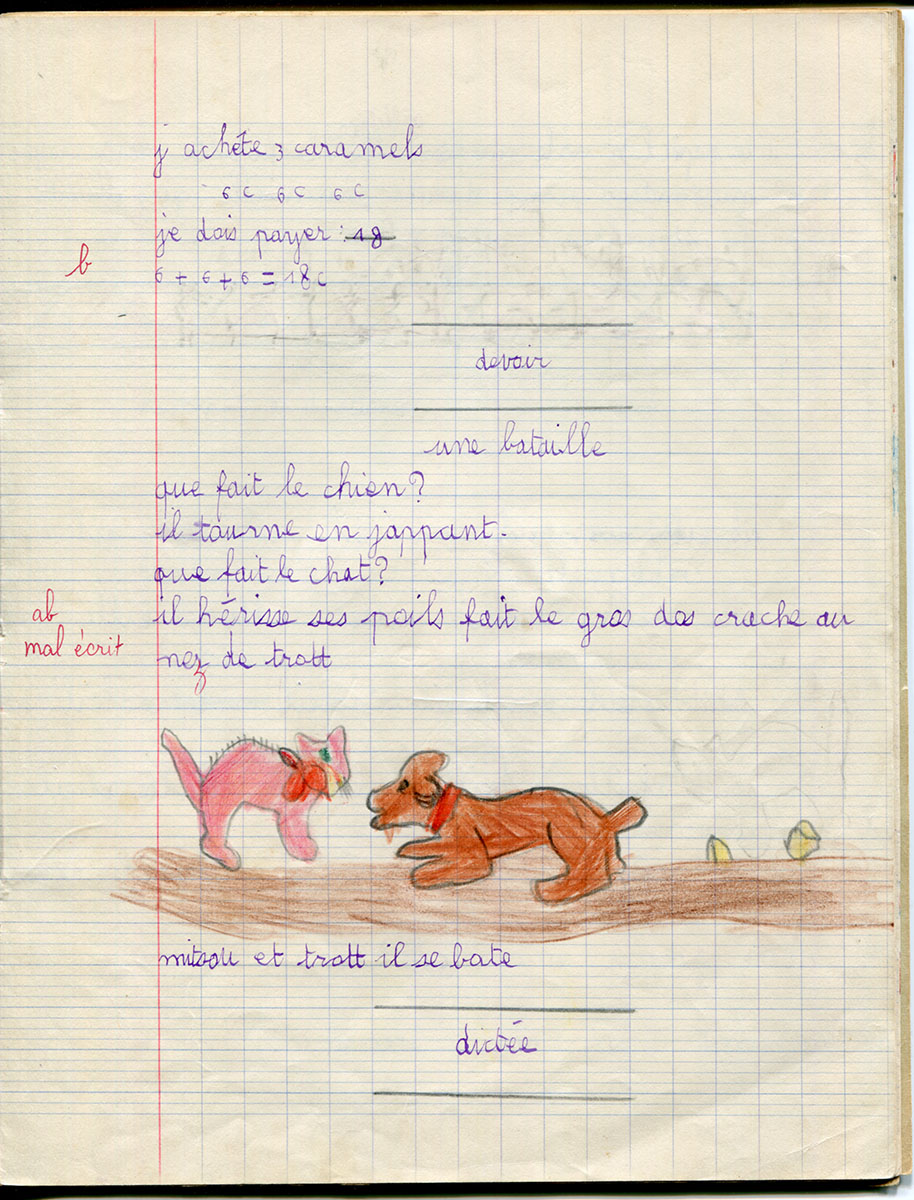 j'achète 3 caramels
6c 6c 6c
je dois payer : 18
b
6 + 6 + 6 = 18c
devoir
une bataille
que fait le chien?
il tourne en jappant.
que fait le chat?
ab
il hérisse ses poils fait le gros dos crache au
mal écrit
nez de trott
mitsou et trott il se bate
dictée